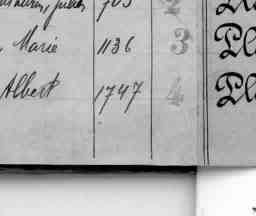 , Jules 705 2
, Marie 1136 3 Pl
Albert 1747 4 Pl